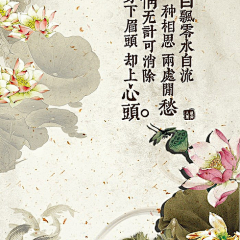 自飄零水自流
种相思 兩處閒愁
情无計可消除
才下眉頭 却上心頭。